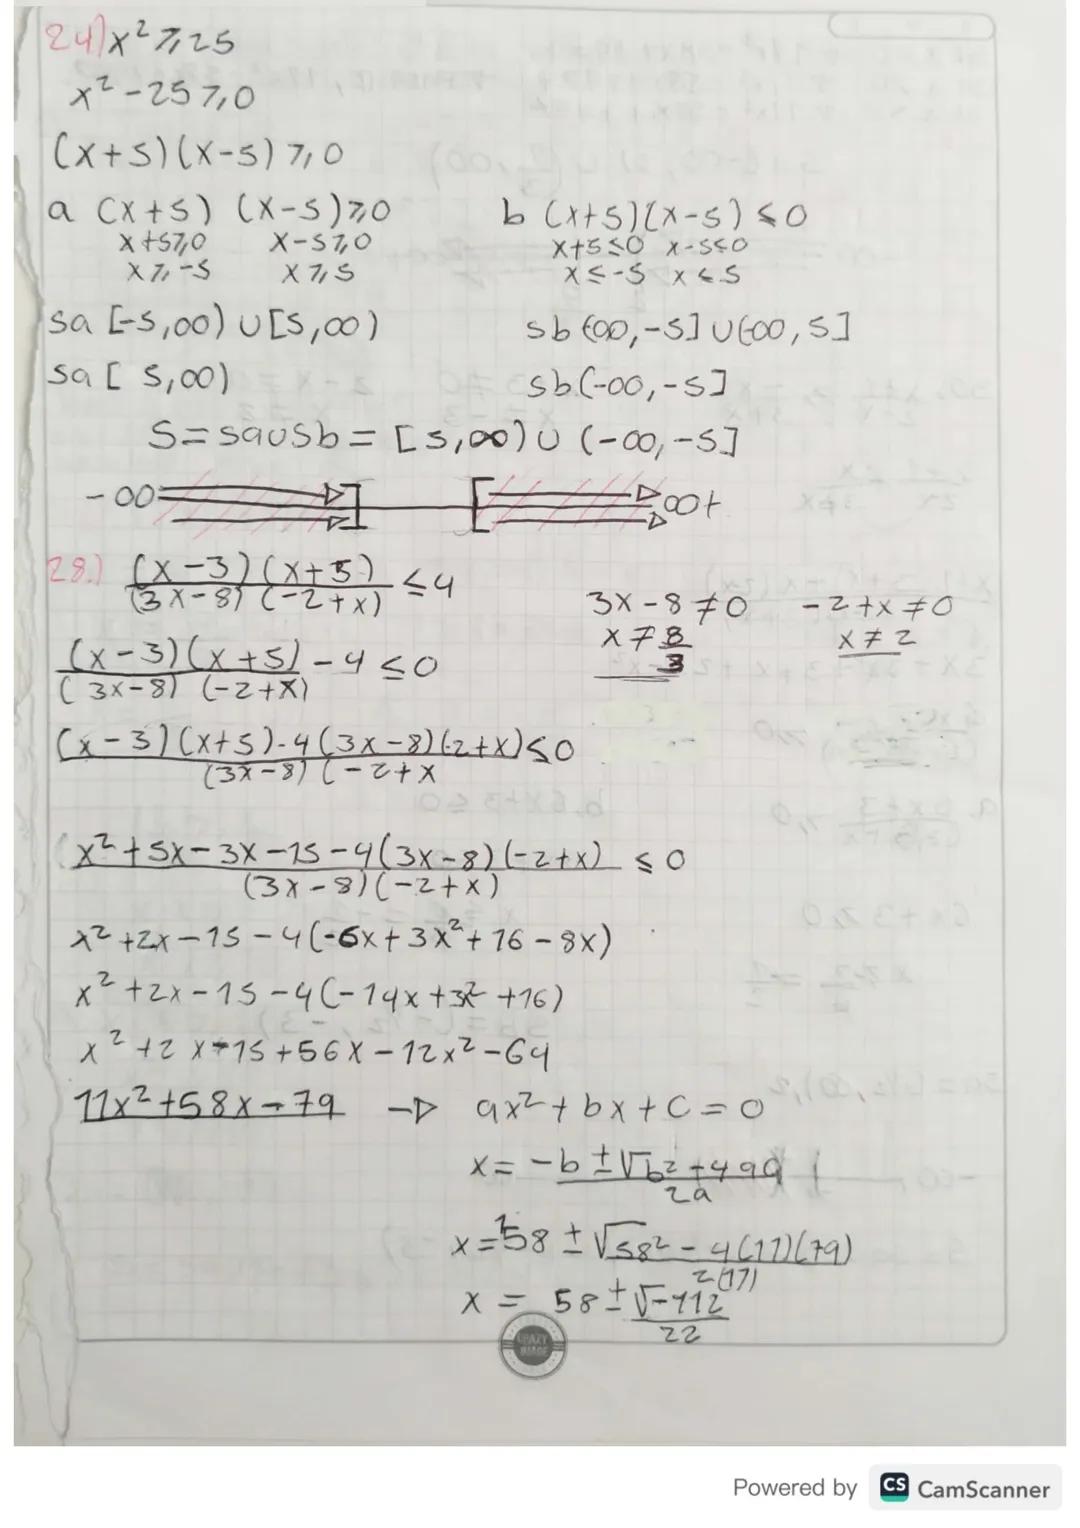 24) x² ≥ 25
x² - 25 ≥ 0
(x+5)(x-5) ≥ 0
a (x+5) (x-5) ≥ 0
x+5 ≥ 0 x-5 ≥ 0
x ≥ -5 x ≥ 5
b (x+5)(x-5) ≤ 0
x+5 ≤ 0 x-5 ≤ 0
x ≤ -5 x ≤ 5
sa [-5,∞) ∪ [5,∞)
sb (∞,-5] ∪ (-∞,5]
sa [5,∞)
sb (-∞,-5]
S = sa ∪ sb = [5,∞) ∪ (-∞,-5]
-∞ ] [ ∞+
28.) (x-3)(x+5) / (3x-8)(-2+x) ≤ 4
3x-8 ≠ 0 -2+x ≠ 0
x ≠ 8/3 x ≠ 2
(x-3)(x+5) / (3x-8)(-2+x) - 4 ≤ 0
(x-3)(x+5)-4(3x-8)(-2+x) / (3x-8)(-2+x ≤ 0
x²+5x-3x-15-4(3x-8)(-2+x) / (3x-8)(-2+x) ≤ 0
x²+2x-15-4(-6x+3x²+16-8x)
x²+2x-15-4(-14x+3x²+16)
x²+2x-15+56x-12x²-64
11x²+58x-79 → ax²+bx+c=0
x = -b ± √b²-4ac / 2a
x = -58 ± √58²-4(11)(79) / 2(11)
x = 58 ± √-112 / 22
CRAZY
IMAGE
Powered by CS CamScanner